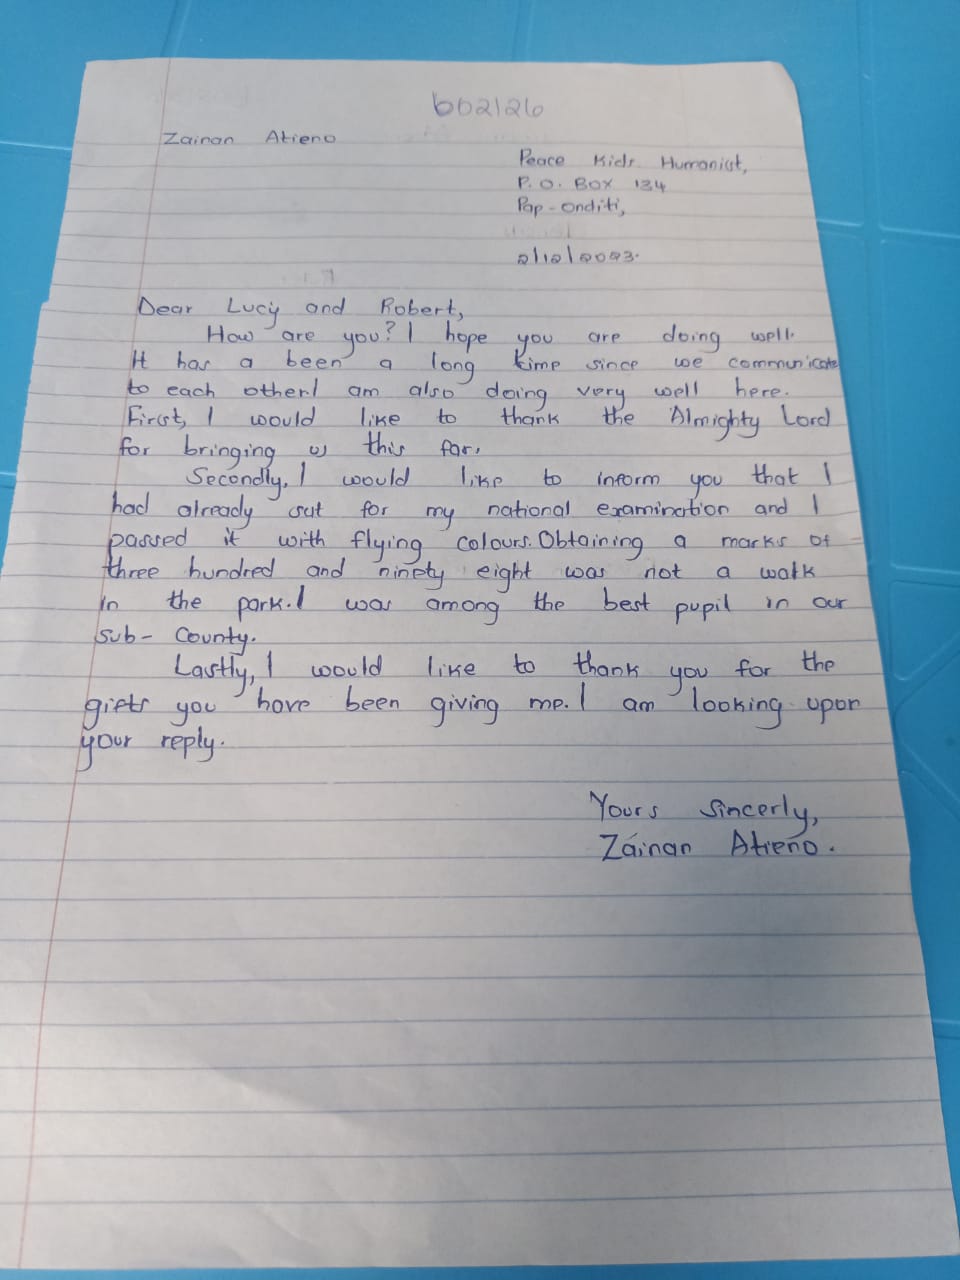 bb2126
Zainan Atieno
Peace Kids Humanist,
P. O. BOX 134
Pap-Onditi,
2/12/2023.
Dear Lucy and Robert,
How are you? I hope you are doing well.
It has a been a long time since we communicate
to each other.I am also doing very well here.
First, I would like to thank the Almighty Lord
for bringing us this far.
Secondly, I would like to inform you that I
had already sat for my national examination and I
passed it with flying colours. Obtaining a marks of
three hundred and ninety eight was not a walk
in the park. I was among the best pupil in our
sub-County.
Lastly, I would like to thank you for the
gifts you have been giving me. I am looking upon
your reply.
Yours Sincerly,
Zainan Atieno.